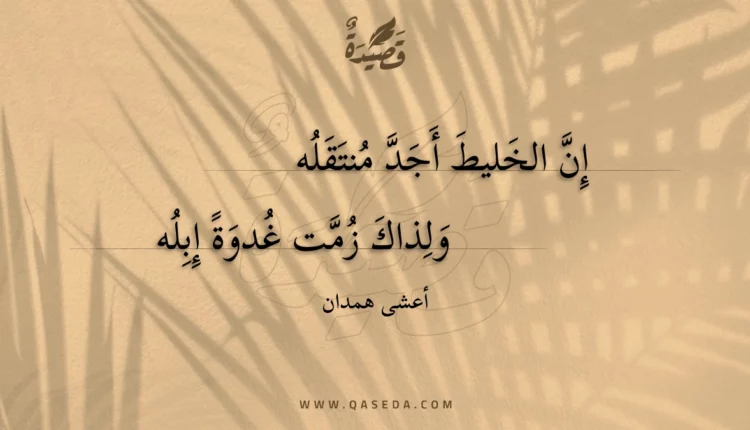 قَصِيدَةٌ
إِنَّ الخَليطَ أَجَدَّ مُنتَقَلُه
وَلِذاكَ زُمَّت غُدوَةً إِبِلُه
أعشى همدان
WWW.QASEDA.COM